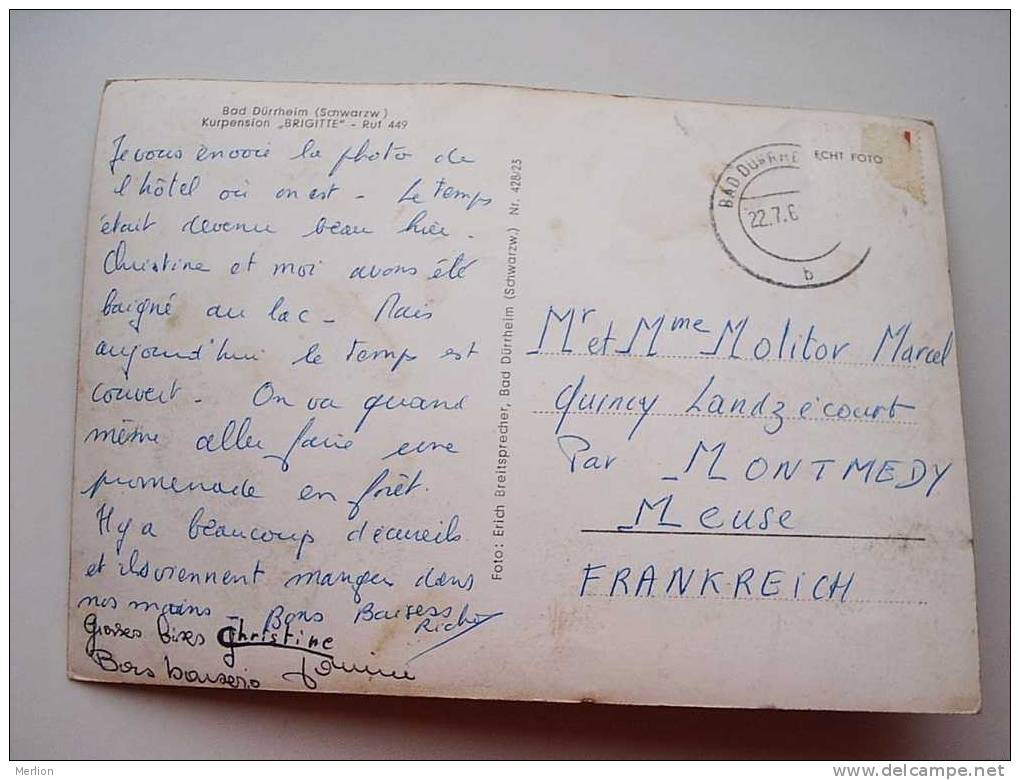 Bad Dürrheim (Schwarzw.)
Kurpension „BRIGITTE" - Ruf 449
Je vous envoie la photo de
l'hôtel où on est - Le temps
était devenu beau hier.
Christine et moi avons été
baigné au lac - Mais
aujourd'hui le temps est
couvert. On va quand
même aller faire une
promenade en forêt.
Il y a beaucoup d'écureils
et ils viennent manger dans
nos mains - Bons Baisess
Grosses bises Christine
Bons baisers
Foto: Erich Breitsprecher, Bad Dürrheim (Schwarzw.) Nr. 428/23
ECHT FOTO
BAD DÜRRHE
22.7.6
b
Mr et Mme Molitor Marcel
Quincy Landzécourt
Par MONTMEDY
Meuse
FRANKREICH
Merlion
www.delcampe.net